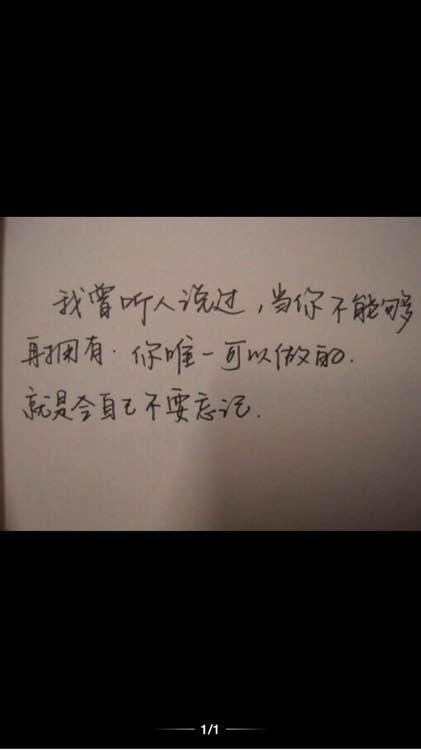 我曾听人说过，当你不能够
再拥有．你唯一可以做的．
就是令自己不要忘记．
1/1